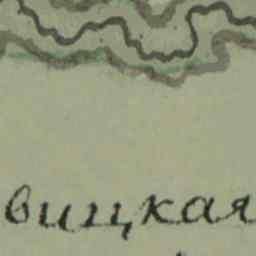 вицкая